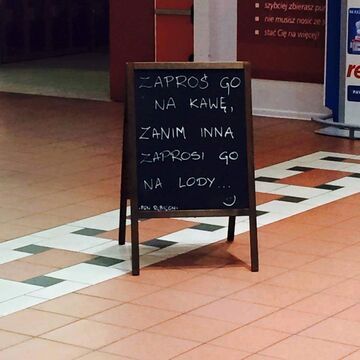 szybciej zbierasz pun
nie musisz nosić ze s
stać Cię na więcej!
ZAPROŚ GO
NA KAWĘ,
ZANIM INNA
ZAPROSI GO
NA LODY... :)